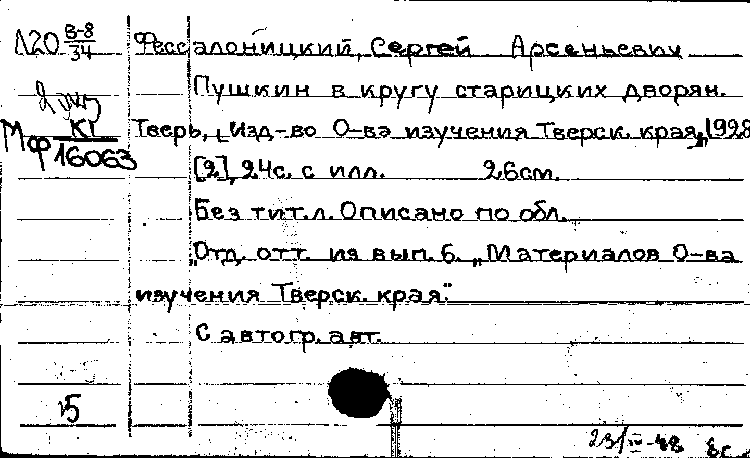 Л20 В-8/34
Фессалоницкий, Сергей Арсеньевич
Пушкин в кругу старицких дворян.
Мф К1/16063
Тверь, [Изд-во О-ва изучения Тверск. края], 1928
[2], 24с. с илл. 26см.
Без тит.л. Описано по обл.
"Отд. отт. из вып. 6. „Материалов О-ва
изучения Тверск. края."
С автогр. авт.
15
23/IV-48